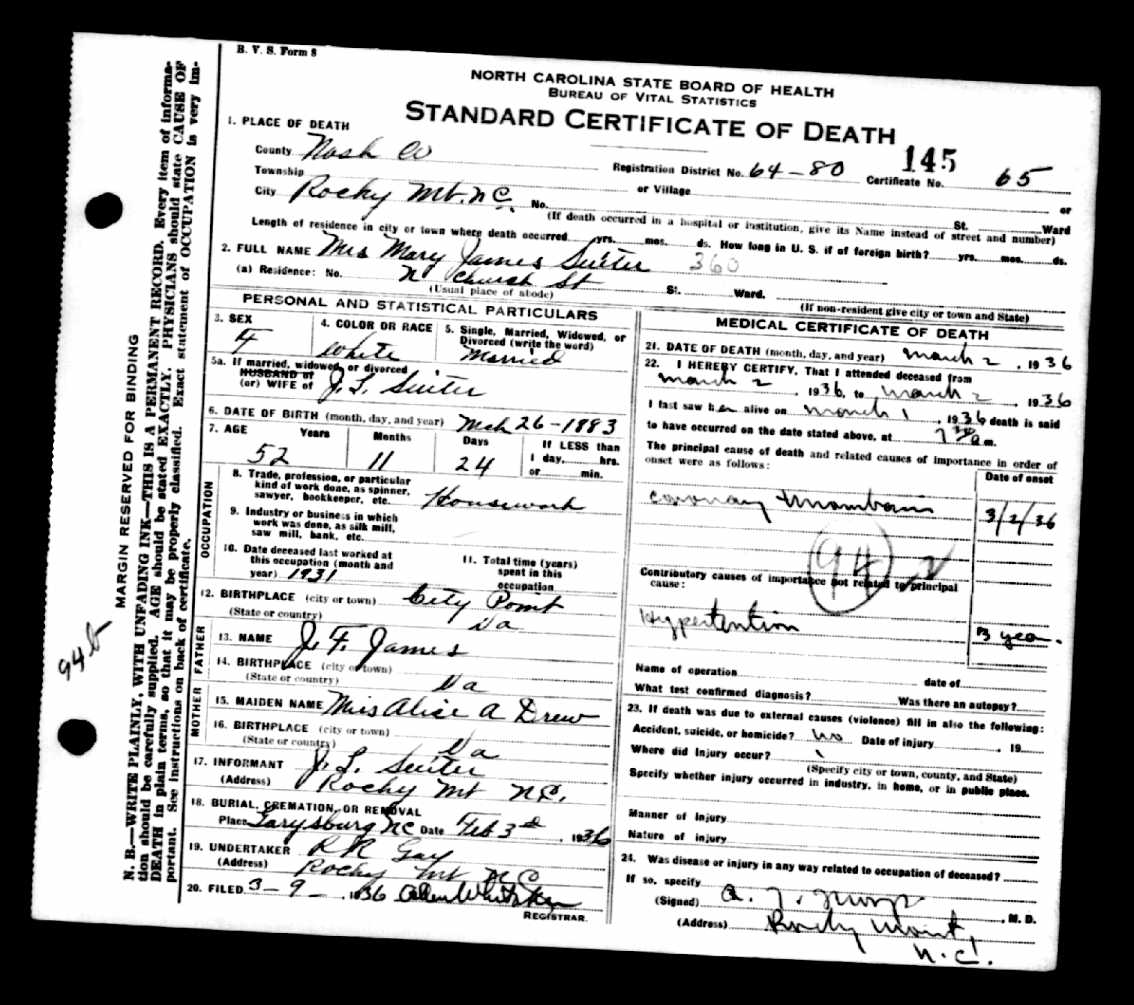 B. V. S. Form 8
NORTH CAROLINA STATE BOARD OF HEALTH
BUREAU OF VITAL STATISTICS
STANDARD CERTIFICATE OF DEATH
1. PLACE OF DEATH
County Nash Co
Registration District No. 64-80 Certificate No. 145 65
Township or Village or
City Rocky Mt. N.C. No. St. Ward
(If death occurred in a hospital or institution, give its Name instead of street and number)
Length of residence in city or town where death occurred yrs. mos. ds. How long in U. S. if of foreign birth? yrs. mos. ds.
2. FULL NAME Mrs Mary James Suiter 360
(a) Residence: No. N Church St St. Ward.
(Usual place of abode) (If non-resident give city or town and State)
PERSONAL AND STATISTICAL PARTICULARS
3. SEX F
4. COLOR OR RACE White
5. Single, Married, Widowed, or Divorced (write the word) Married
5a. If married, widowed, or divorced
HUSBAND of
(or) WIFE of J. L. Suiter
6. DATE OF BIRTH (month, day, and year) Mch 26-1883
7. AGE Years Months Days If LESS than
52 11 24 1 day, hrs.
or min.
OCCUPATION
8. Trade, profession, or particular
kind of work done, as spinner,
sawyer, bookkeeper, etc. Housework
9. Industry or business in which
work was done, as silk mill,
saw mill, bank, etc.
10. Date deceased last worked at
this occupation (month and
year) 1931
11. Total time (years)
spent in this
occupation
12. BIRTHPLACE (city or town) City Point
(State or country) Va
FATHER
13. NAME J. F. James
14. BIRTHPLACE (city or town)
(State or country) Va
MOTHER
15. MAIDEN NAME Miss Alice A Drew
16. BIRTHPLACE (city or town)
(State or country) Va
17. INFORMANT J. L. Suiter
(Address) Rocky Mt N.C.
18. BURIAL, CREMATION, OR REMOVAL
Place Garysburg NC Date Feb 3rd, 1936
19. UNDERTAKER R R Gay
(Address) Rocky Mt N C
20. FILED 3-9-, 1936 Allen Whitaker
REGISTRAR.
MEDICAL CERTIFICATE OF DEATH
21. DATE OF DEATH (month, day, and year) March 2, 1936
22. I HEREBY CERTIFY, That I attended deceased from
March 2, 1936, to March 2, 1936
I last saw her alive on March 1, 1936 death is said
to have occurred on the date stated above, at 7 30 a m.
The principal cause of death and related causes of importance in order of
onset were as follows:
Date of onset
Coronary Thrombosis 3/2/36
94
Contributory causes of importance not related to principal
cause:
Hypertention 3 year.
Name of operation date of
What test confirmed diagnosis? Was there an autopsy?
23. If death was due to external causes (violence) fill in also the following:
Accident, suicide, or homicide? no Date of injury , 19
Where did injury occur?
(Specify city or town, county, and State)
Specify whether injury occurred in industry, in home, or in public place.
Manner of injury
Nature of injury
24. Was disease or injury in any way related to occupation of deceased?
If so, specify
(Signed) , M. D.
(Address) Rocky Mount,
N.C.
MARGIN RESERVED FOR BINDING
N. B.—WRITE PLAINLY, WITH UNFADING INK—THIS IS A PERMANENT RECORD. Every item of informa-
tion should be carefully supplied. AGE should be stated EXACTLY. PHYSICIANS should state CAUSE OF
DEATH in plain terms, so that it may be properly classified. Exact statement of OCCUPATION is very im-
portant. See instructions on back of certificate.
94b